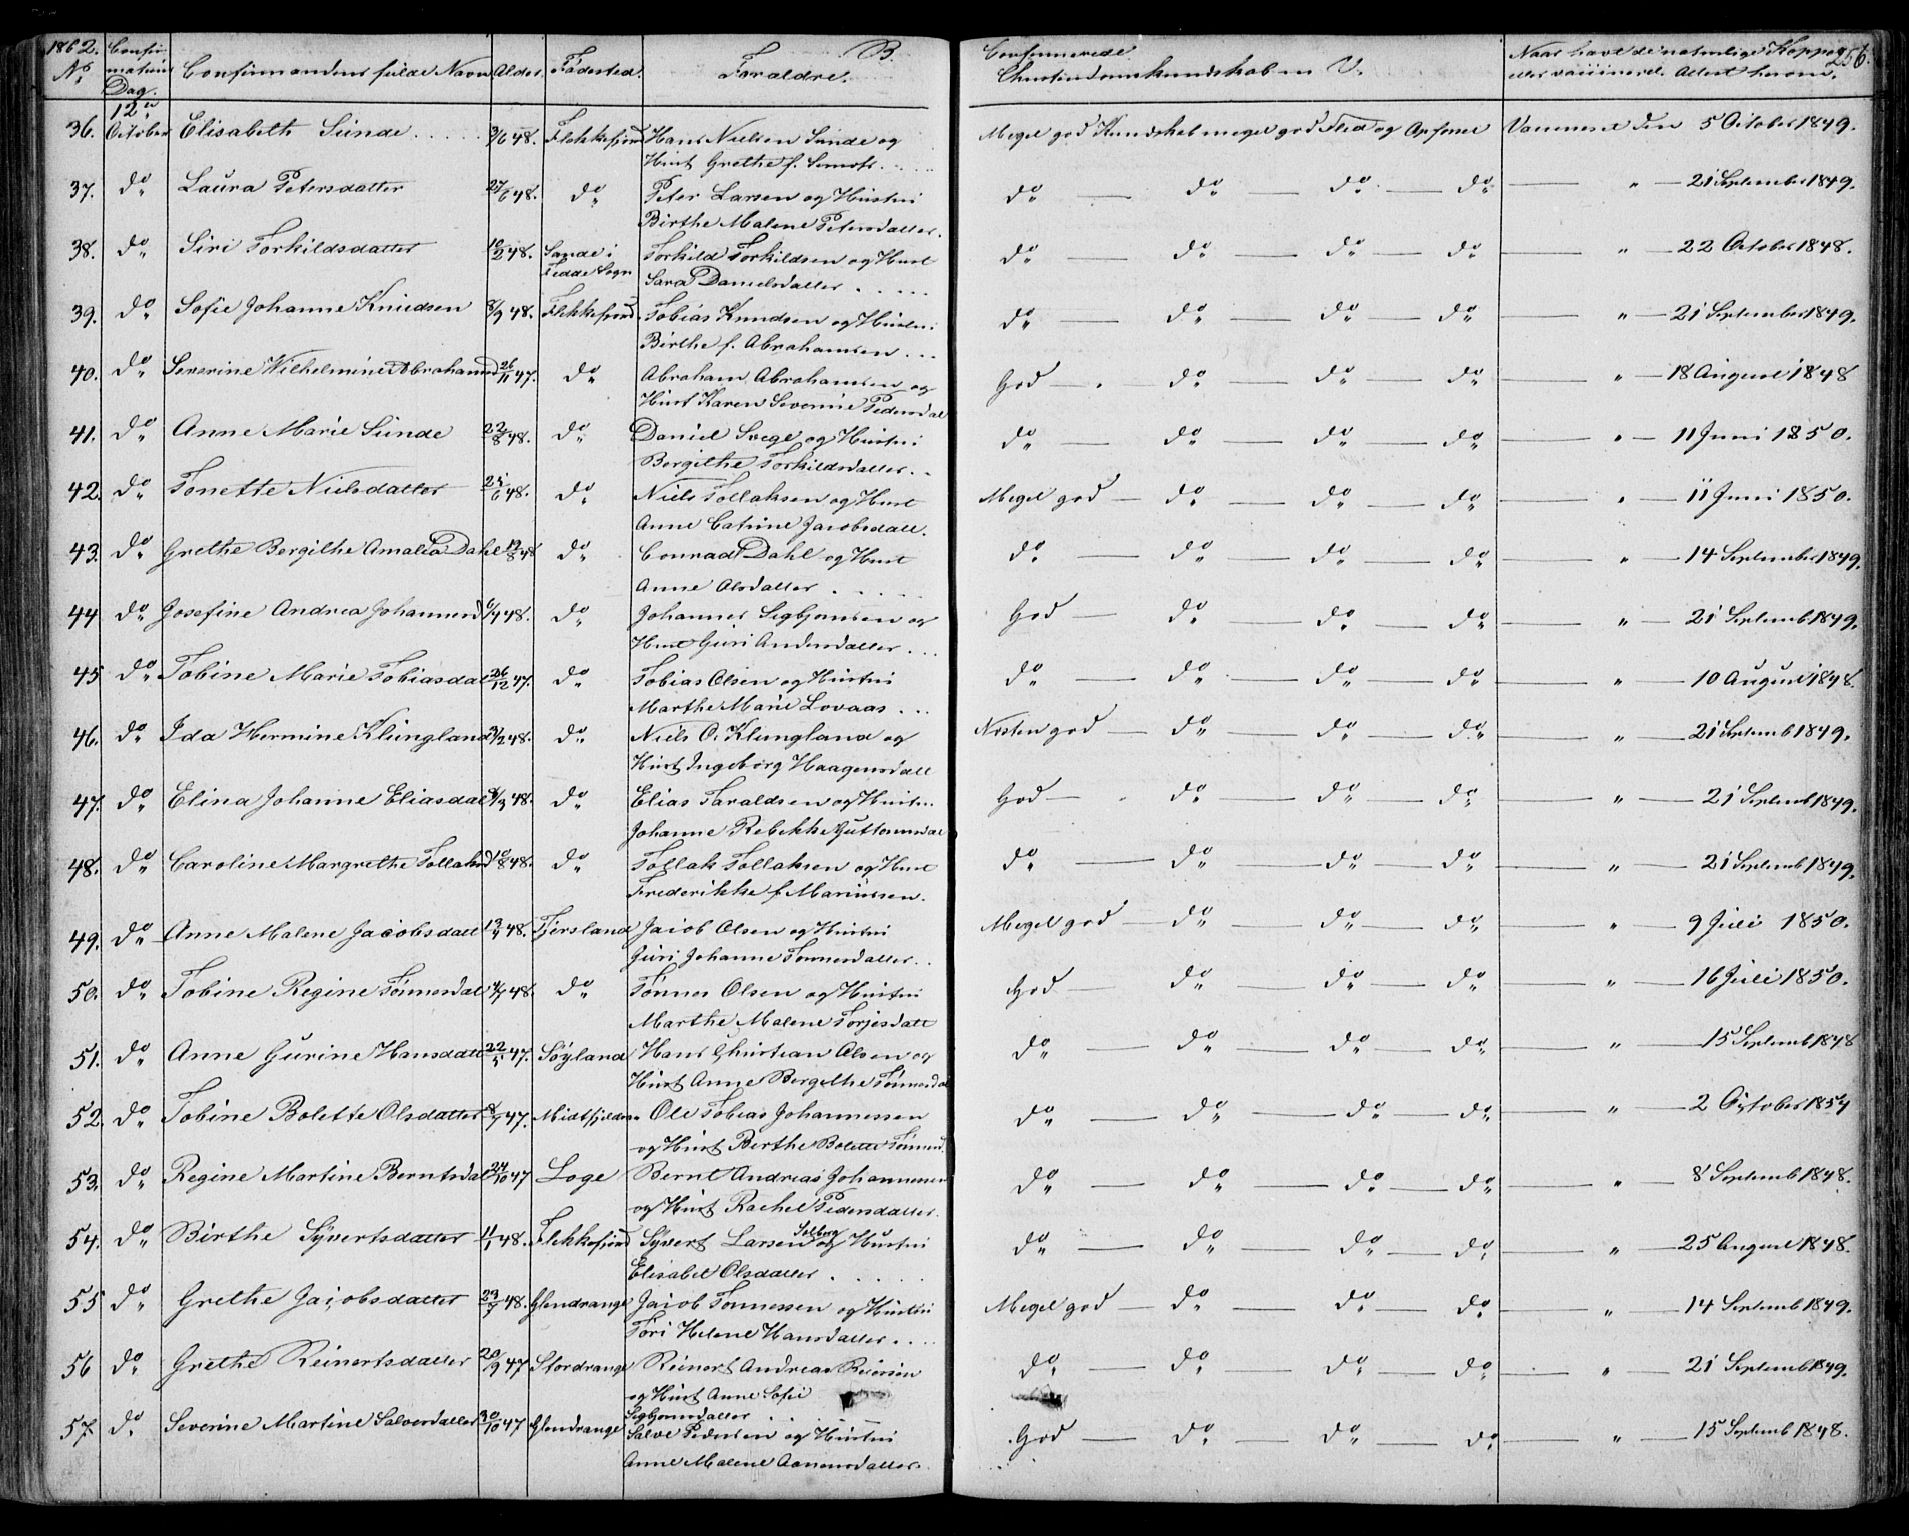 1862.
No. Confirmations Dag. Confirmandens fulde Navn Alder. Fødested. Forældre. B.
Confirmerede Christendomskundskab m V. Naar havt de naturlige Kopper eller vaccineret. Attest herom. 256.
36. 12te October Elisabeth Sunde 3/6 48. Flekkefjord Hans Nielsen Sunde og Meget god Kundskab meget god Flid og Opførsel Vaccineret den 5 October 1849.
Hust Grethe f.
37. do Laura Petersdatter 27/6 48. do Peter Larsen og Hustru do do do do " 21 September 1849.
Birthe Malene Petersdatter.
38. do Siri Torkildsdatter 10/2 48. Sande i Torkild Torkildsen og Hust do do do do " 22 October 1848.
Fedde Sogn Sara Danielsdatter
39. do Sofie Johanne Knudsen 8/9 48. Flekkefjord Tobias Knudsen og Hustru do do do do " 21 September 1849.
Birthe f. Abrahamsen
40. do Severine Wilhelmine Abrahamsd 26/11 47. do Abraham Abrahamsen og God do do do " 18 August 1848
Hust Karen Severine Pedersdat
41. do Anne Marie Sunde 22/8 48. do Daniel Svege og Hustru do do do do " 11 Juni 1850.
Bergithe Torkildsdatter.
42. do Tonette Nielsdatter 24/6 48. do Niels Tollaksen og Hust Meget god do do do " 11 Juni 1850.
Anne Catrine Jacobsdatt.
43. do Grethe Bergithe Amalia Dahl 19/8 48 do Conrad Dahl og Hust do do do do " 14 September 1849.
Anne Olsdatter
44 do Josefine Andrea Johannesd 48. do Johannes Sigbjørnsen og God do do do " 21 Septemb 1849.
Hust Guri Andersdatter
45 do Tobine Marie Tobiasdat 26/12 47. do Tobias Olsen og Hustru do do do do " 10 August 1848.
Marthe Marie Lovaas
46. do Ida Hermine Klungland 48. do Niels O. Klungland og Næsten god do do do " 21 Septemb 1849.
Hust Ingeborg Haagensdatt
47. do Elina Johanne Eliasdat 8/3 48. do Elias Taraldsen og Hustru God do do do " 21 Septemb 1849.
Johanne Rebekke Guttormsdat
48. do Caroline Margrethe Tollaksd 10/8 48. do Tollak Tollaksen og Hust do do do do " 21 Septemb 1849.
Frederikke f. Mariussen.
49. do Anne Malene Jacobsdatt 48. Fjersland Jacob Olsen og Hustru Meget god do do do " 9 Juli 1850.
Guri Johanne Tønnesdatter.
50. do Tobine Regine Tønnesdat 48. do Tønnes Olsen og Hustru God do do do " 16 Juli 1850.
Marthe Malene Torjesdatt
51. do Anne Gurine Hansdatt 47. Søyland Hans Christian Olsen og do do do do " 15 Septemb 1848
Hust Anne Bergithe Tønnesdat
52. do Tobine Bolette Olsdatter 47. Midtfjilden Ole Tobias Johannessen do do do do " 2 October 1854
og Hust Berthe Bolette Tønnesd.
53. do Regine Martine Berntsdat 24/10 47 Loge Bernt Andreas Johannesen do do do do " 8 Septemb 1848.
og Hust Rachel Pedersdatter.
54. do Birthe Syvertsdatter 11/1 48. Flekkefjord Syvert Larsen Solberg og Hustru do do do do " 25 August 1848.
Elisabet Olsdatter
55 do Grethe Jacobsdatter 48. Glendrange Jacob Tønnessen og Hustru Meget god do do do " 14 Septemb 1849.
Tori Helene Hansdatter
56 do Grethe Reinertsdatter 20/9 47 Stordrange Reinert Andreas Reiersen do do do do " 21 Septemb 1849.
og Hust Anne Sofie
Sigbjørnsdatter
57. do. Severine Martine Salvesdatter 30/10 47 Glendrange Salve Pedersen og Hustru God do do do " 15 Septemb 1848.
Anne Malene Aanensdatter.